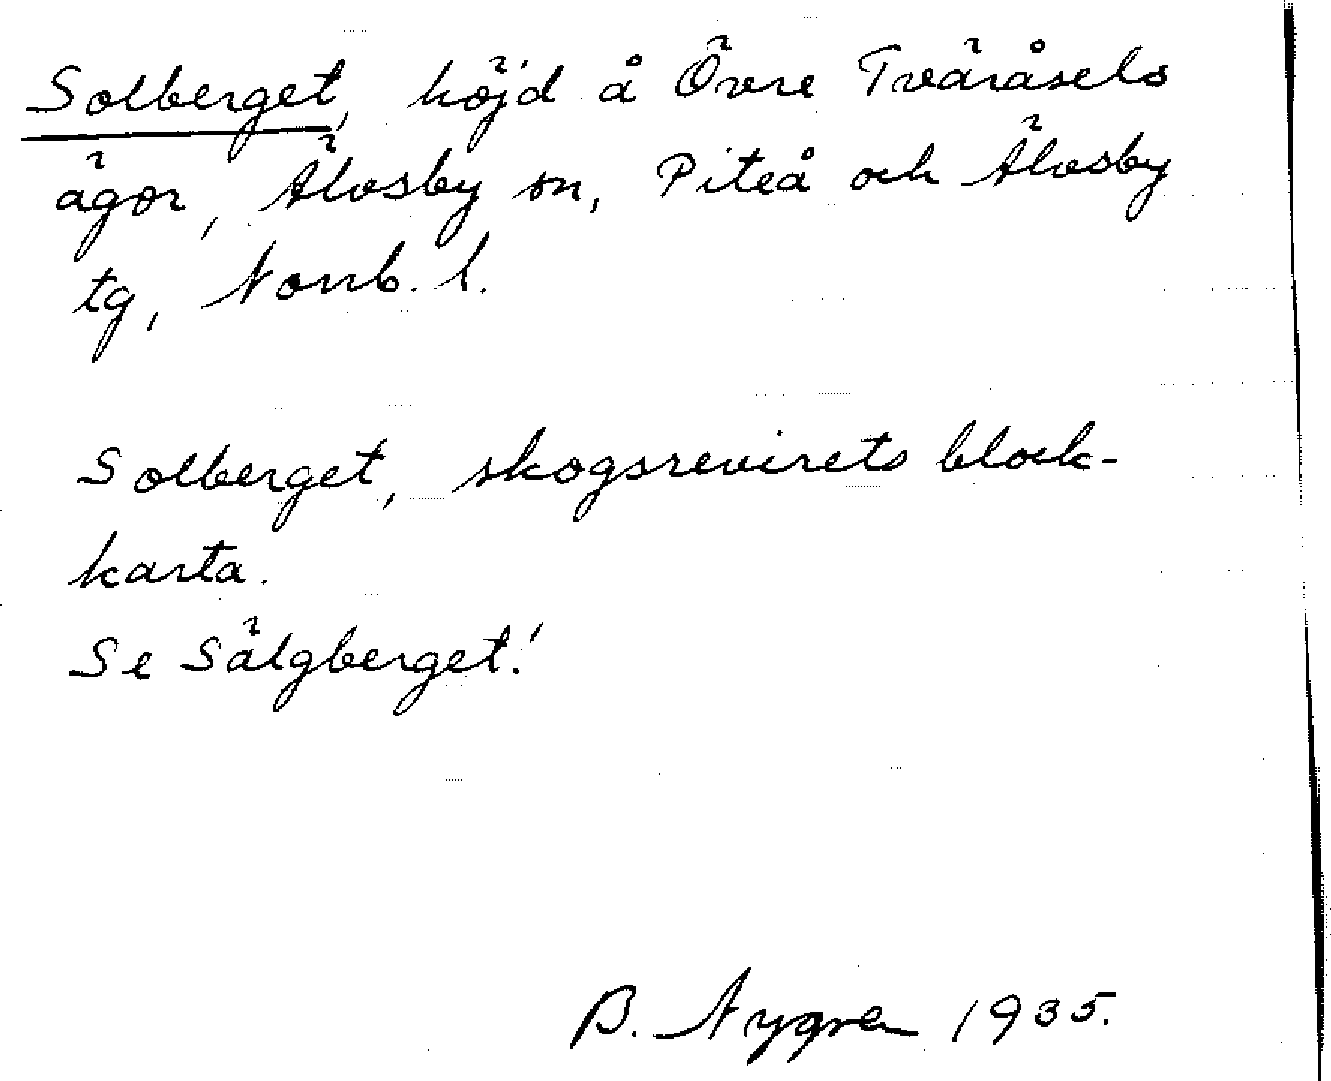 Solberget, höjd å Övre Tväråsels
ägor, Älvsby sn, Piteå och Älvsby
tg, Norrb. l.
Solberget, skogsrevirets block-
karta.
Se Sälgberget!
B. Nygren 1935.